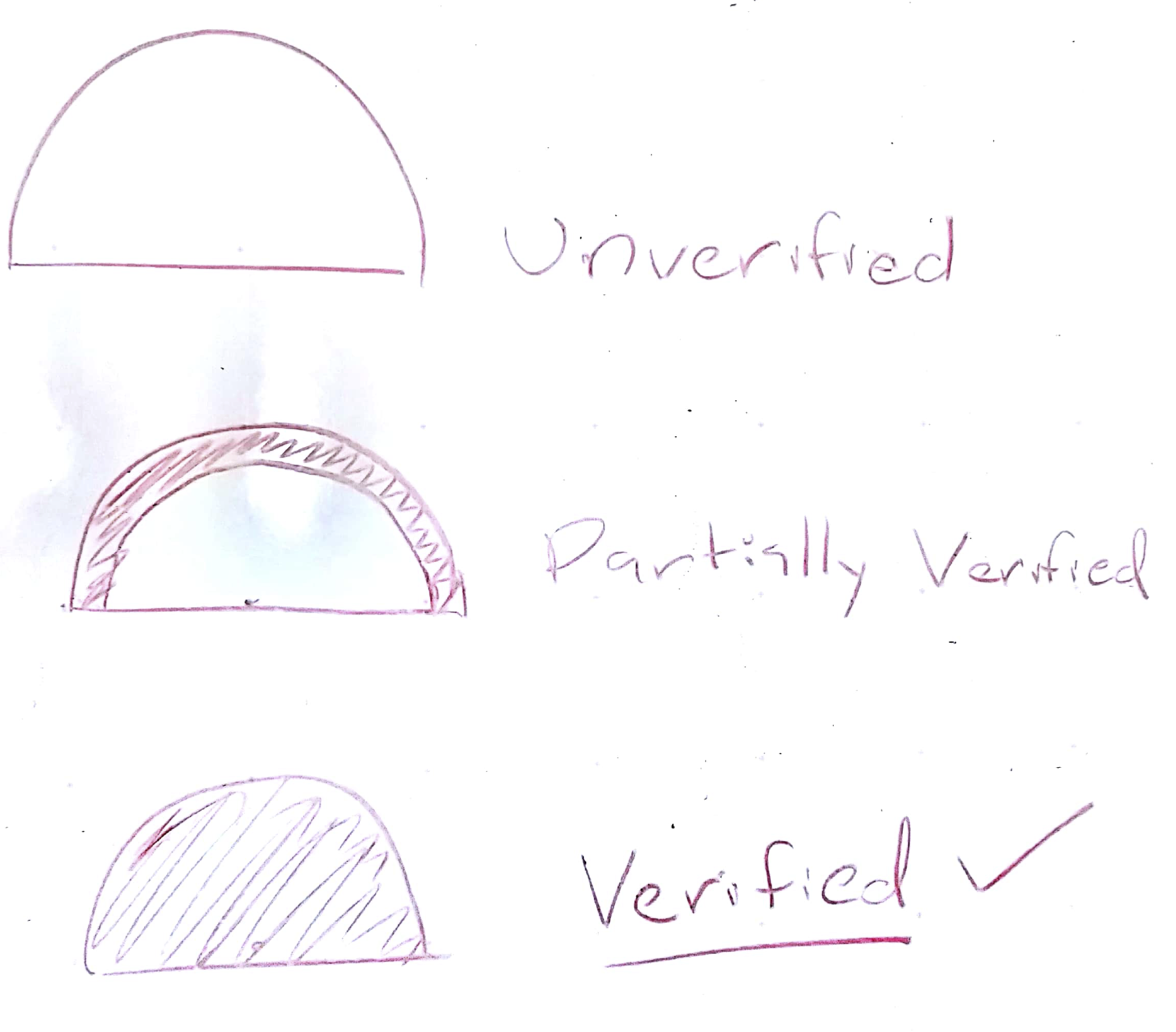 Unverified
Partially Verified
Verified ✓